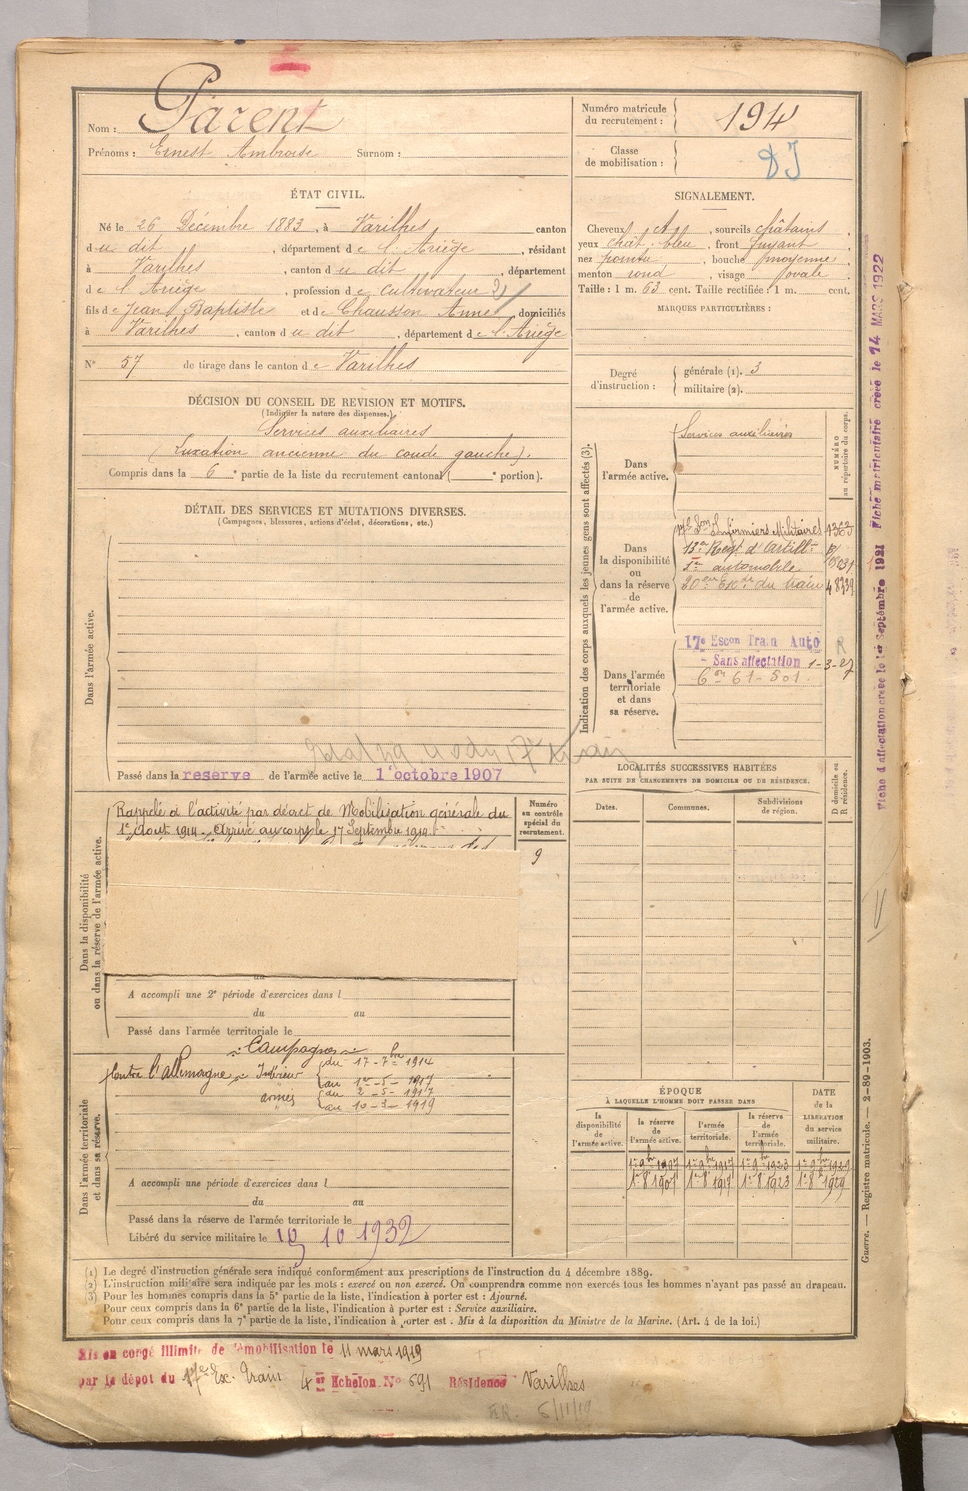 Nom : Parent
Prénoms : Ernest Ambroise Surnom :
Numéro matricule du recrutement : 194
Classe de mobilisation :
ÉTAT CIVIL.
Né le 26 Décembre 1883, à Varilhes canton
du dit, département de l'Ariège, résidant
à Varilhes, canton du dit, département
de l'Ariège, profession de cultivateur
fils de Jean Baptiste et de Chausson Anne, domiciliés
à Varilhes, canton du dit, département de l'Ariège
N° 57 de tirage dans le canton de Varilhes
SIGNALEMENT.
Cheveux, sourcils châtains,
yeux chât. bleu, front fuyant,
nez pointu, bouche moyenne,
menton rond, visage ovale.
Taille : 1 m. 63 cent. Taille rectifiée : 1 m. cent.
MARQUES PARTICULIÈRES :
Degré d'instruction : générale (1). 3
militaire (2).
DÉCISION DU CONSEIL DE REVISION ET MOTIFS.
(Indiquer la nature des dispenses.)
Services auxiliaires
(Luxation ancienne du coude gauche).
Compris dans la 6e partie de la liste du recrutement cantonal ( e portion).
DÉTAIL DES SERVICES ET MUTATIONS DIVERSES.
(Campagnes, blessures, actions d'éclat, décorations, etc.)
Dans l'armée active.
Passé dans la reserve de l'armée active le 1 octobre 1907
Indication des corps auxquels les jeunes gens sont affectés (3).
NUMÉRO au répertoire du corps.
Dans l'armée active.
Services auxiliaires
Dans la disponibilité ou dans la réserve de l'armée active.
Infirmiers Militaires
13e Régt d'artille
1er automobile
20e Esc du train
Dans l'armée territoriale et dans sa réserve.
17e Escon Train Auto
- Sans affectation 1-3-27
Ou dans la disponibilité ou dans la réserve de l'armée active.
Rappelé à l'activité par décret de Mobilisation générale du
1er Août 1914. Arrivé au corps le 17 Septembre 1914.
Numéro au contrôle spécial du recrutement.
9
A accompli une 2e période d'exercices dans l
du au
Passé dans l'armée territoriale le
Dans l'armée territoriale et dans sa réserve.
Campagnes
Contre l'Allemagne Intérieur du 17-7bre 1914
au 1er-5-1917
armées du 2-5-1917
au 10-3-1919
A accompli une période d'exercices dans l
du au
Passé dans la réserve de l'armée territoriale le
Libéré du service militaire le 10 10 1932
LOCALITÉS SUCCESSIVES HABITÉES
PAR SUITE DE CHANGEMENTS DE DOMICILE OU DE RÉSIDENCE.
Dates. Communes. Subdivisions de région. D domicile ou R résidence.
ÉPOQUE
À LAQUELLE L'HOMME DOIT PASSER DANS
la disponibilité de l'armée active. la réserve de l'armée active. l'armée territoriale. la réserve de l'armée territoriale. DATE de la LIBÉRATION du service militaire.
(1) Le degré d'instruction générale sera indiqué conformément aux prescriptions de l'instruction du 4 décembre 1889.
(2) L'instruction militaire sera indiquée par les mots : exercé ou non exercé. On comprendra comme non exercés tous les hommes n'ayant pas passé au drapeau.
(3) Pour les hommes compris dans la 5e partie de la liste, l'indication à porter est : Ajourné.
Pour ceux compris dans la 6e partie de la liste, l'indication à porter est : Service auxiliaire.
Pour ceux compris dans la 7e partie de la liste, l'indication à porter est. Mis à la disposition du Ministre de la Marine. (Art. 4 de la loi.)
Guerre. — Registre matricule. — 2-89-1903.
Fiche d'affectation créée le 1er Septembre 1921 Fiche matriculaire créée le 14 MARS 1922
Mis en congé illimité de démobilisation le 11 mars 1919
par le dépôt du 17e Esc. Train 4e Echelon N° 691 Résidence Varilhes
6/11/19